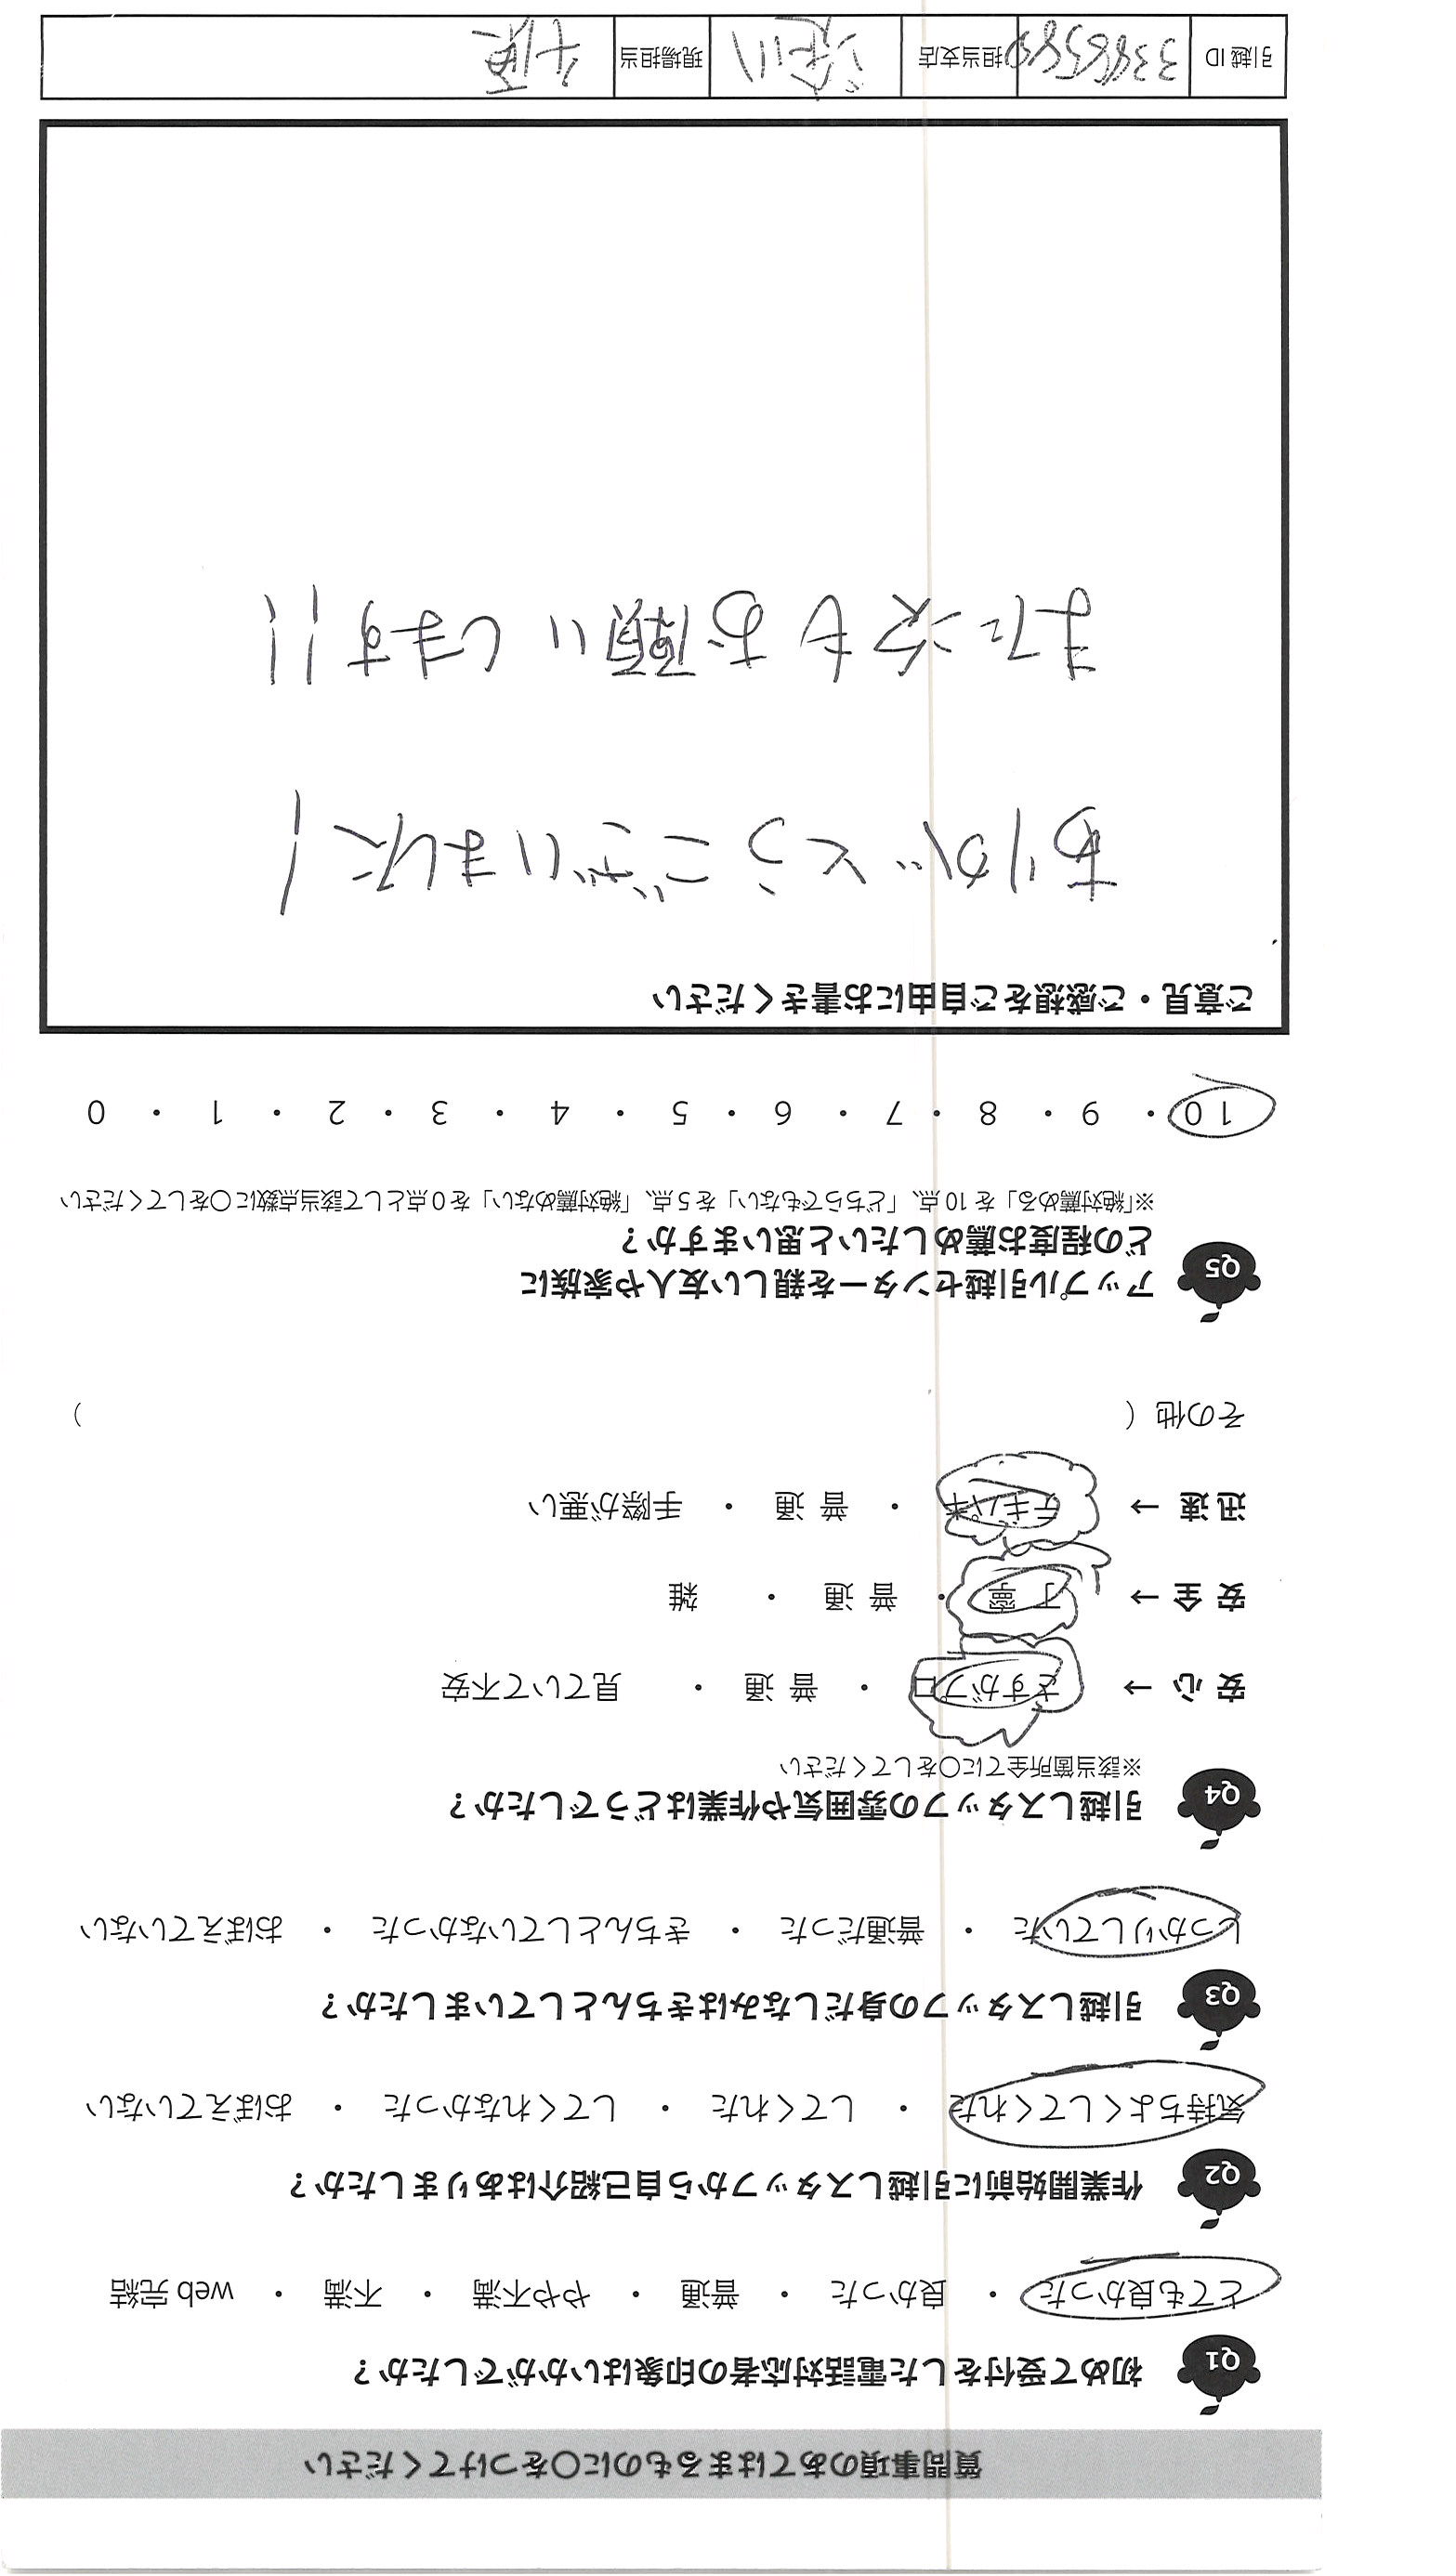 質問事項のあてはまるものに○をつけてください
Q1 初めて受付をした電話対応者の印象はいかがでしたか？
とても良かった ・ 良かった ・ 普通 ・ やや不満 ・ 不満 ・ web 完結
Q2 作業開始前に引越しスタッフから自己紹介はありましたか？
気持ちよくしてくれた ・ してくれた ・ してくれなかった ・ おぼえていない
Q3 引越しスタッフの身だしなみはきちんとしていましたか？
しっかりしていた ・ 普通だった ・ きちんとしていなかった ・ おぼえていない
Q4 引越しスタッフの雰囲気や作業はどうでしたか？
※該当箇所全てに○をしてください
安 心 → さすがプロ ・ 普 通 ・ 見ていて不安
安 全 → 丁 寧 ・ 普 通 ・ 雑
迅 速 → テキパキ ・ 普 通 ・ 手際が悪い
その他（ ）
Q5 アップル引越センターを親しい友人や家族に
どの程度お薦めしたいと思いますか？
※「絶対薦める」を 10 点、「どちらでもない」を 5 点、「絶対薦めない」を 0 点として該当点数に○をしてください
10 ・ 9 ・ 8 ・ 7 ・ 6 ・ 5 ・ 4 ・ 3 ・ 2 ・ 1 ・ 0
ご意見・ご感想をご自由にお書きください
ありがとうございました！
また次もお願いします！！
引越 ID 担当支店 現場担当